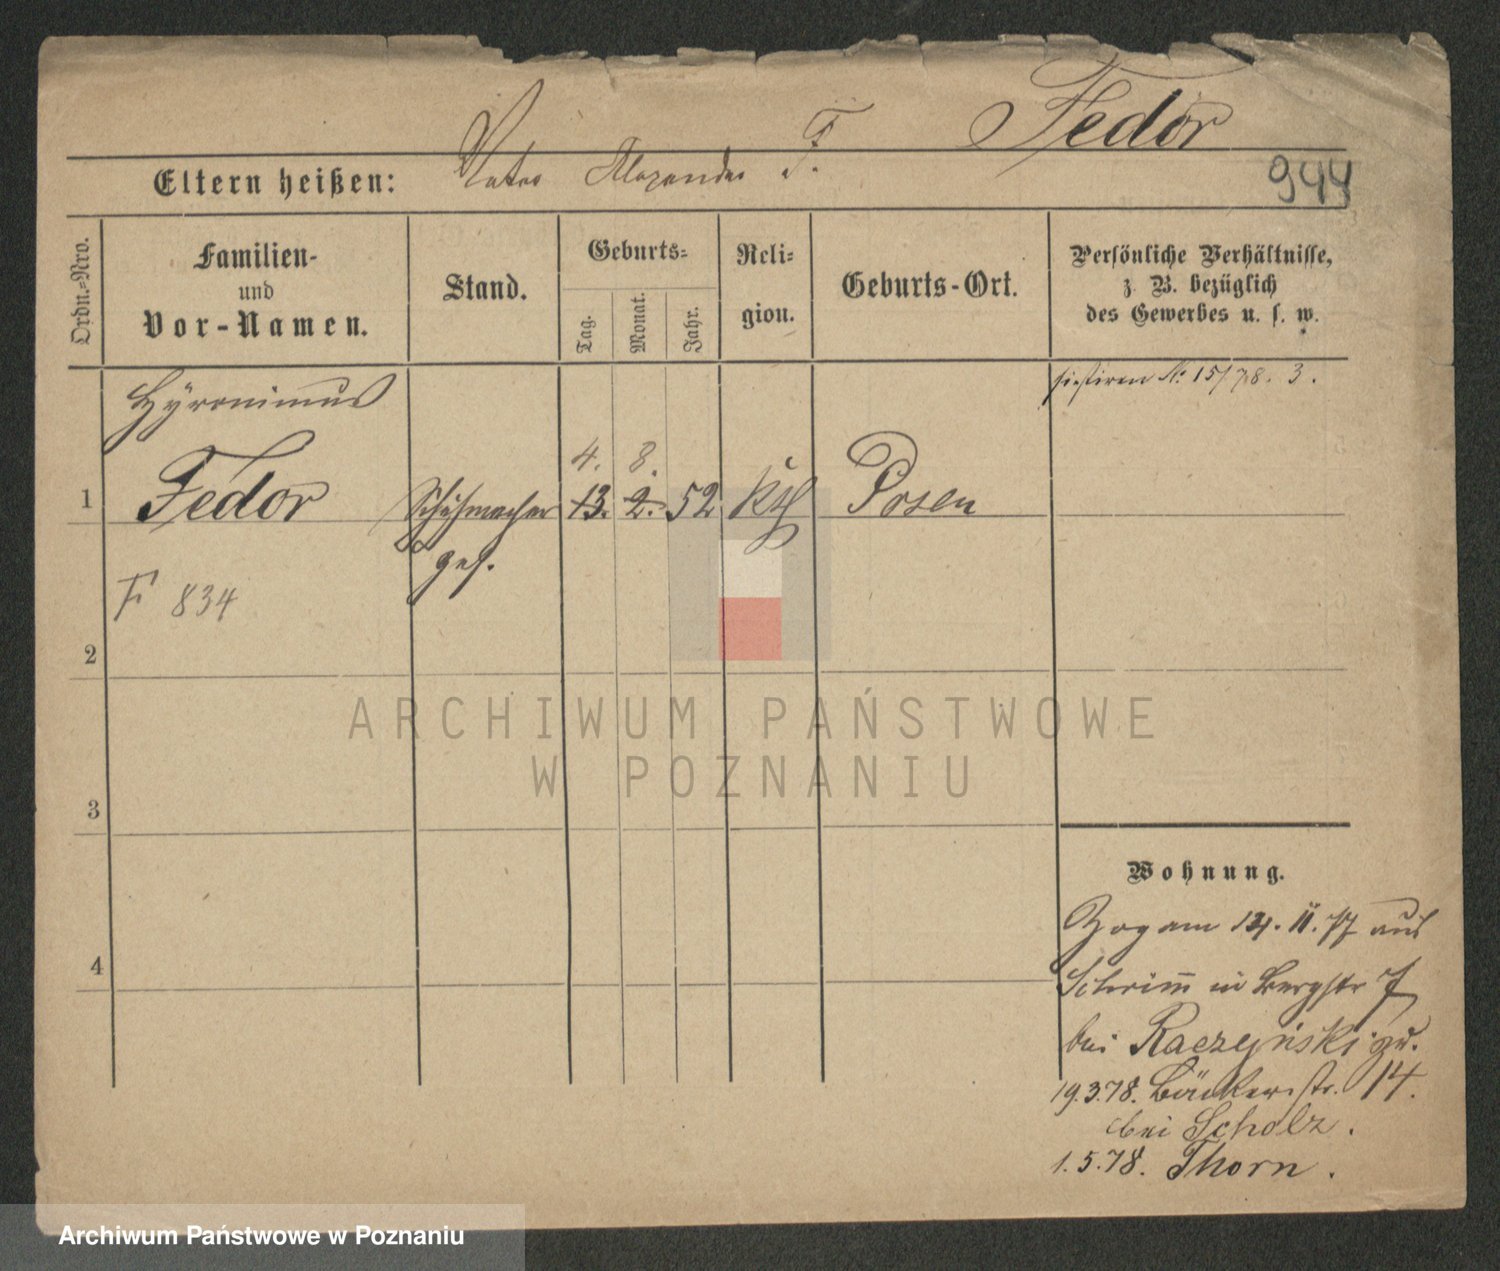 Fedor
Vater Alexander F.
Eltern heißen:
944
Ordn.-Nro.
Familien-
und
Vor-Namen.
Stand.
Geburts-
Tag.
Monat.
Jahr.
Reli-
gion.
Geburts-Ort.
Persönliche Verhältnisse,
z. B. bezüglich
des Gewerbes u. s. w.
No 15/78. 3.
Hyronimus
4. 8.
1 Fedor Schuhmacher 13. 2. 52 kth Posen
ges.
F 834
2
3
4
Wohnung.
Zog am 11. 77 aus
Schrimm in Bergstr 7
bei Raczejnski
19.3.78. Bäckerstr. 14.
bei Scholz.
1.5.78. Thorn.
ARCHIWUM PAŃSTWOWE
W POZNANIU
Archiwum Państwowe w Poznaniu